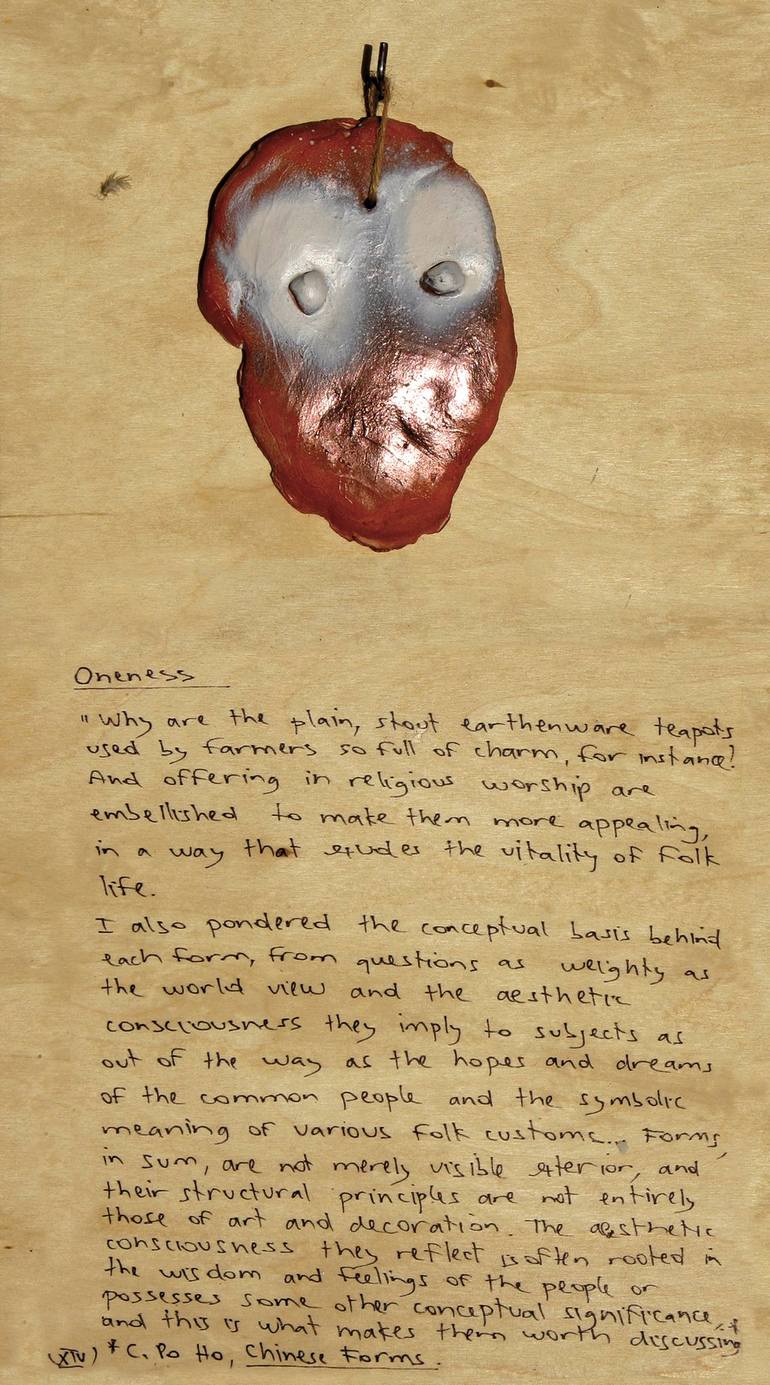 Oneness
"Why are the plain, stout earthenware teapots
used by farmers so full of charm, for instance?
And offering in religious worship are
embellished to make them more appealing,
in a way that exudes the vitality of folk
life.
I also pondered the conceptual basis behind
each form, from questions as weighty as
the world view and the aesthetic
consciousness they imply to subjects as
out of the way as the hopes and dreams
of the common people and the symbolic
meaning of various folk customs... Forms,
in sum, are not merely visible exterior, and
their structural principles are not entirely
those of art and decoration. The aesthetic
consciousness they reflect is often rooted in
the wisdom and feelings of the people or
possesses some other conceptual significance,
and this is what makes them worth discussing"*
(XIV) * C. Po Ho, Chinese Forms.